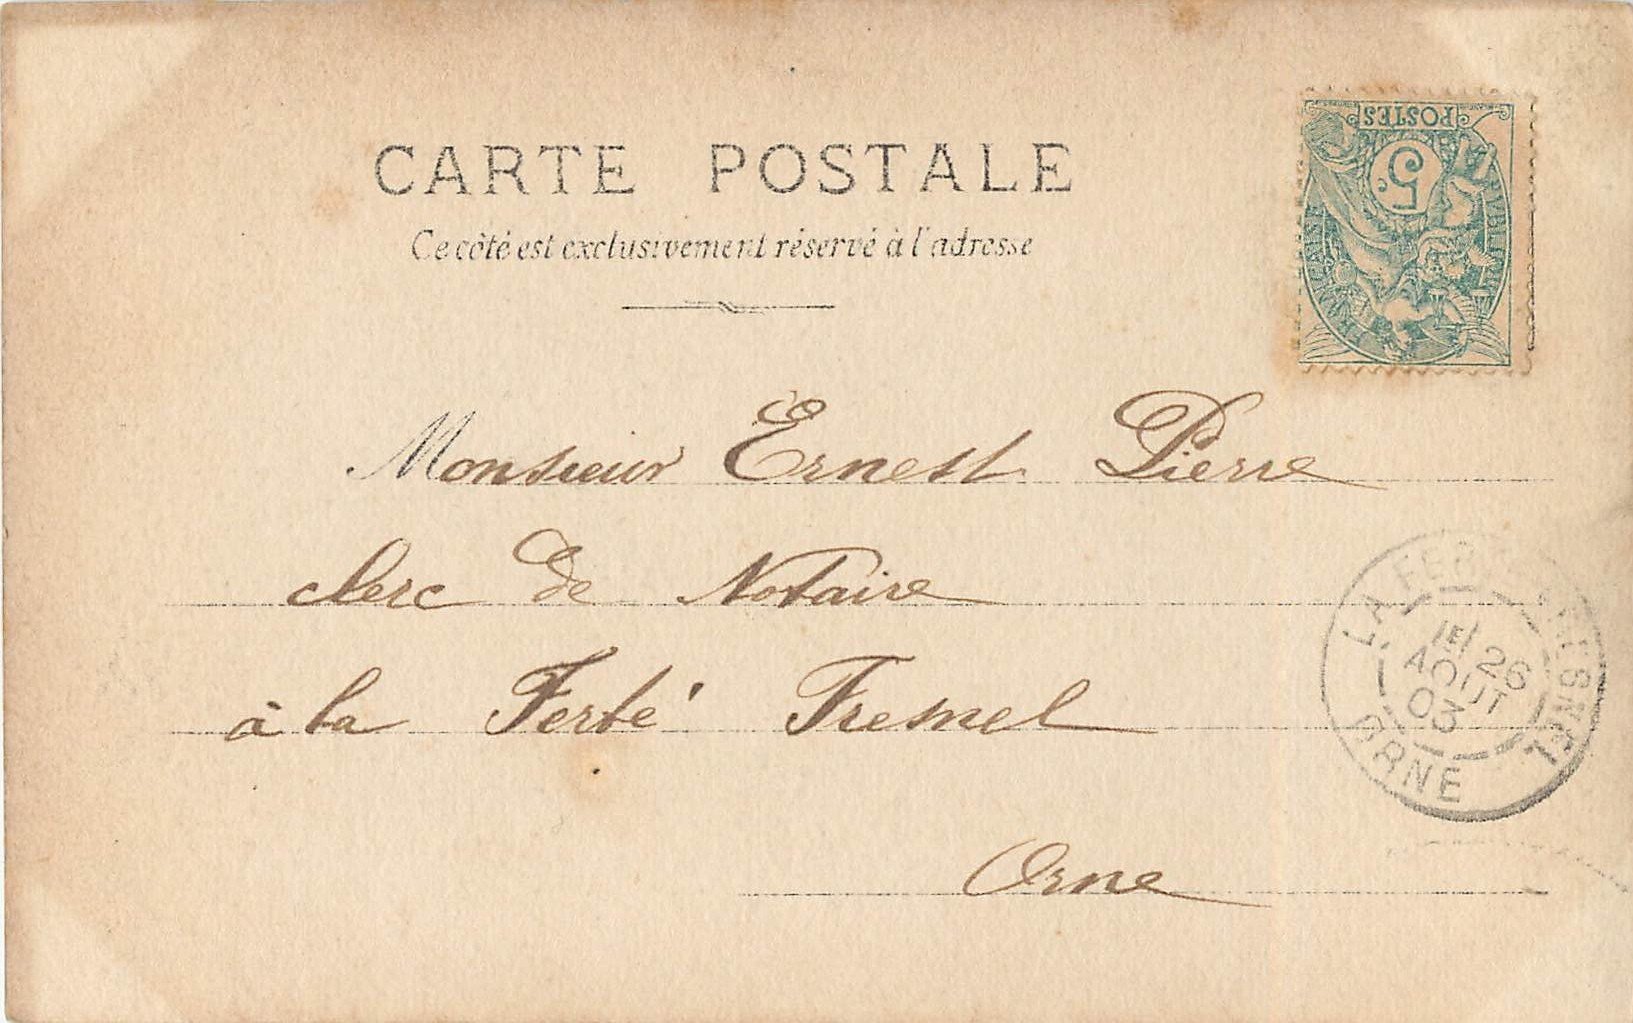 CARTE POSTALE
Ce côté est exclusivement réservé à l'adresse
POSTES
5c
Monsieur Ernest Pierre
clerc de Notaire
à la Ferté Fresnel
Orne
LA FERTÉ-FRESNEL
1E
26
AOUT
03
ORNE